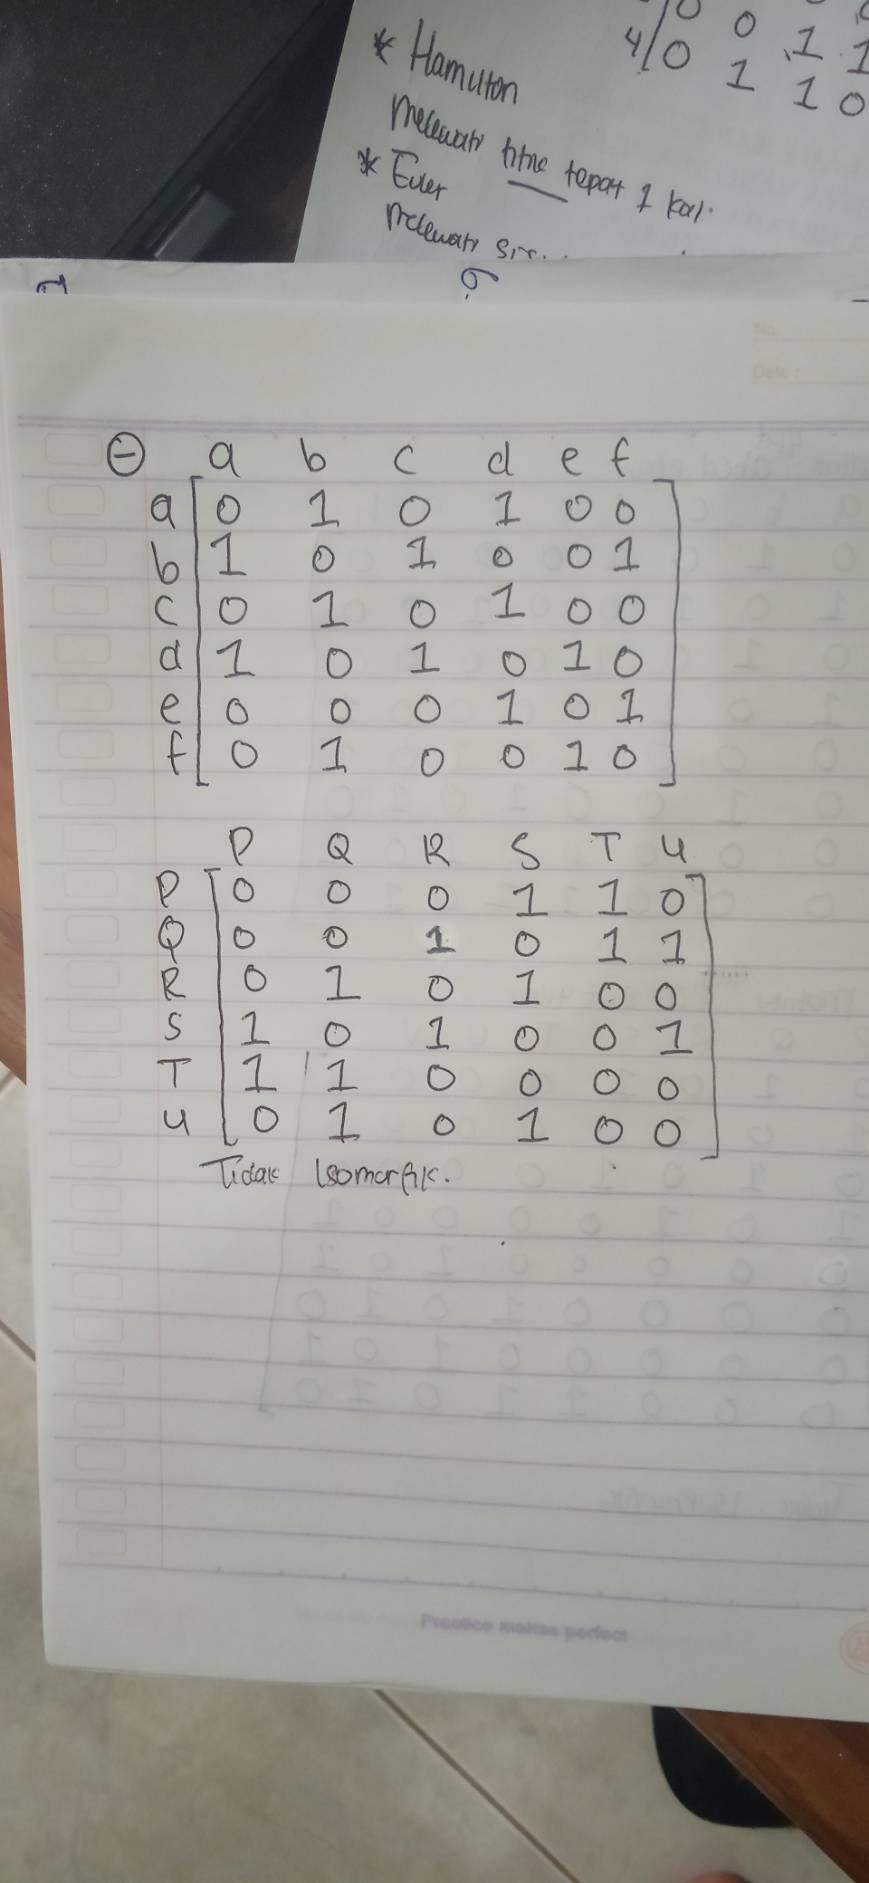 0 0
0 1 1
4 0 1 1 0
* Hamilton
melewati titik tepat 1 kali.
* Euler
melewati
No
Date :
a b c d e f
a 0 1 0 1 0 0
b 1 0 1 0 0 1
c 0 1 0 1 0 0
d 1 0 1 0 1 0
e 0 0 0 1 0 1
f 0 1 0 0 1 0
P Q R S T U
P 0 0 0 1 1 0
Q 0 0 1 0 1 1
R 0 1 0 1 0 0
S 1 0 1 0 0 1
T 1 1 0 0 0 0
U 0 1 0 1 0 0
Tidak Isomorfik.
Practice makes perfect